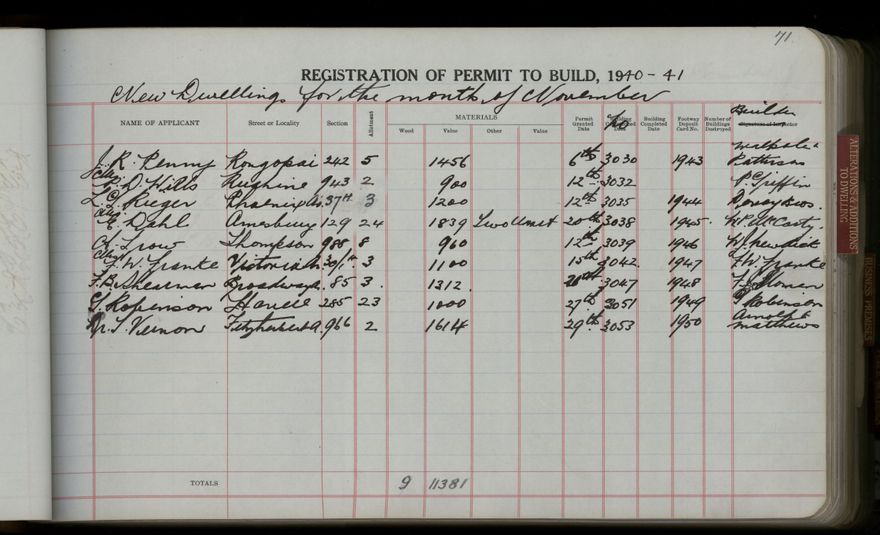 71.
REGISTRATION OF PERMIT TO BUILD, 1940-41
New Dwellings for the month of November
NAME OF APPLICANT Street or Locality Section Allotment MATERIALS Wood Value Other Value Permit Granted Date No Building Completed Date Footway Deposit Card No. Number of Buildings Destroyed Builder
J. R. Penny Rongopai 242 5 1456 6th 3030 1943 Walpole &
D. Wills 943 2 900 12th 3032 P. Griffin
Rieger 37 3 1200 12th 3035 1944 Bros.
Dahl Amesbury 129 24 1839 Two Unit 20th 3038 1945 McCarty
Trow Thompson 988 8 960 12th 3039 1946 W.
F. W. Franke Victoria 3 1100 15th 3042 1947 F. W. Franke
F. B. Shearman Broadway 85 3 1312 3047 1948
Robinson 285 23 1000 27th 3051 1949 Robinson
Vernon Fitzherbert A. 966 2 1614 29th 3053 1950 Arnold & Matthews
TOTALS 9 11381
ALTERATIONS & ADDITIONS TO DWELLING
BUSINESS PREMISES